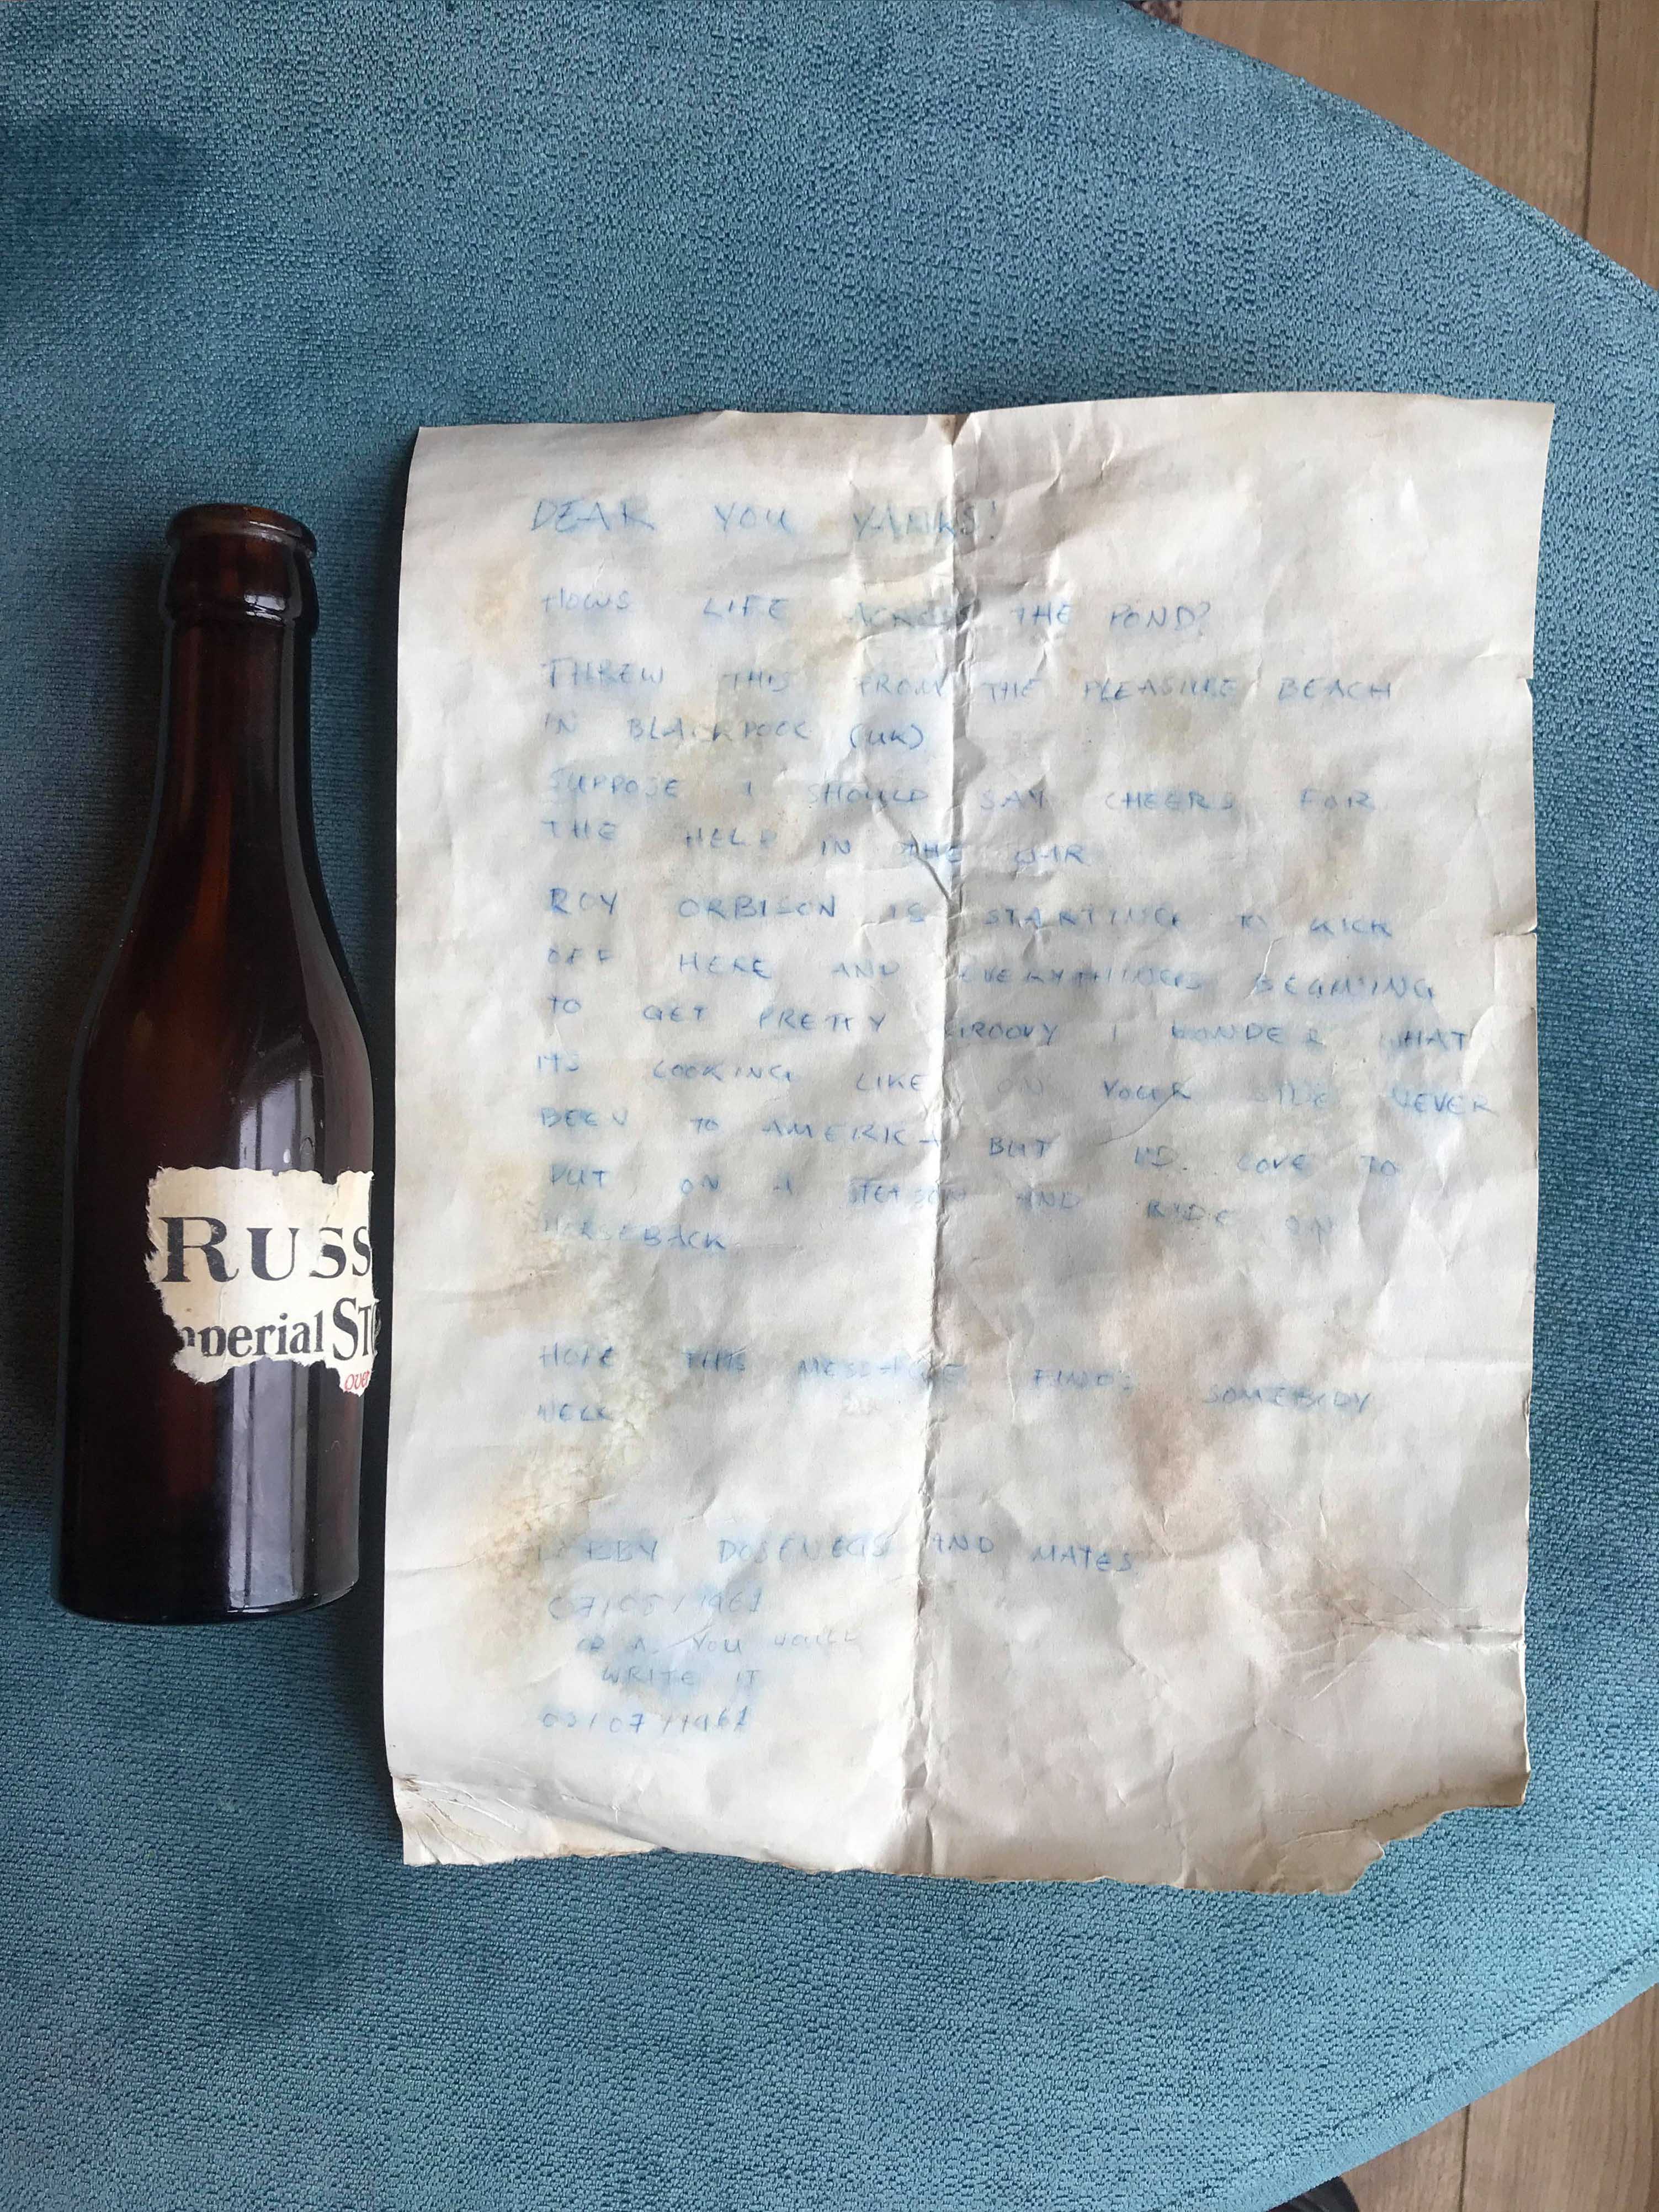 DEAR YOU YANKS!
HOWS LIFE ACROSS THE POND?
THREW THIS FROM THE PLEASURE BEACH
IN BLACKPOOL (UK)
SUPPOSE I SHOULD SAY CHEERS FOR
THE HELP IN THE WAR
ROY ORBISON IS STARTING TO KICK
OFF HERE AND EVERYTHINGS BEGINING
TO GET PRETTY GROOVY I WONDER WHAT
ITS LOOKING LIKE ON YOUR SIDE NEVER
BEEN TO AMERICA BUT I'D LOVE TO
PUT ON A STETSON AND RIDE ON
HORSEBACK
HOPE THIS MESSAGE FINDS SOMEBODY
WELL
AND MATES
07/03/1961
YOU
WRITE IT
03/07/1961
RUSS
mperial STO
over